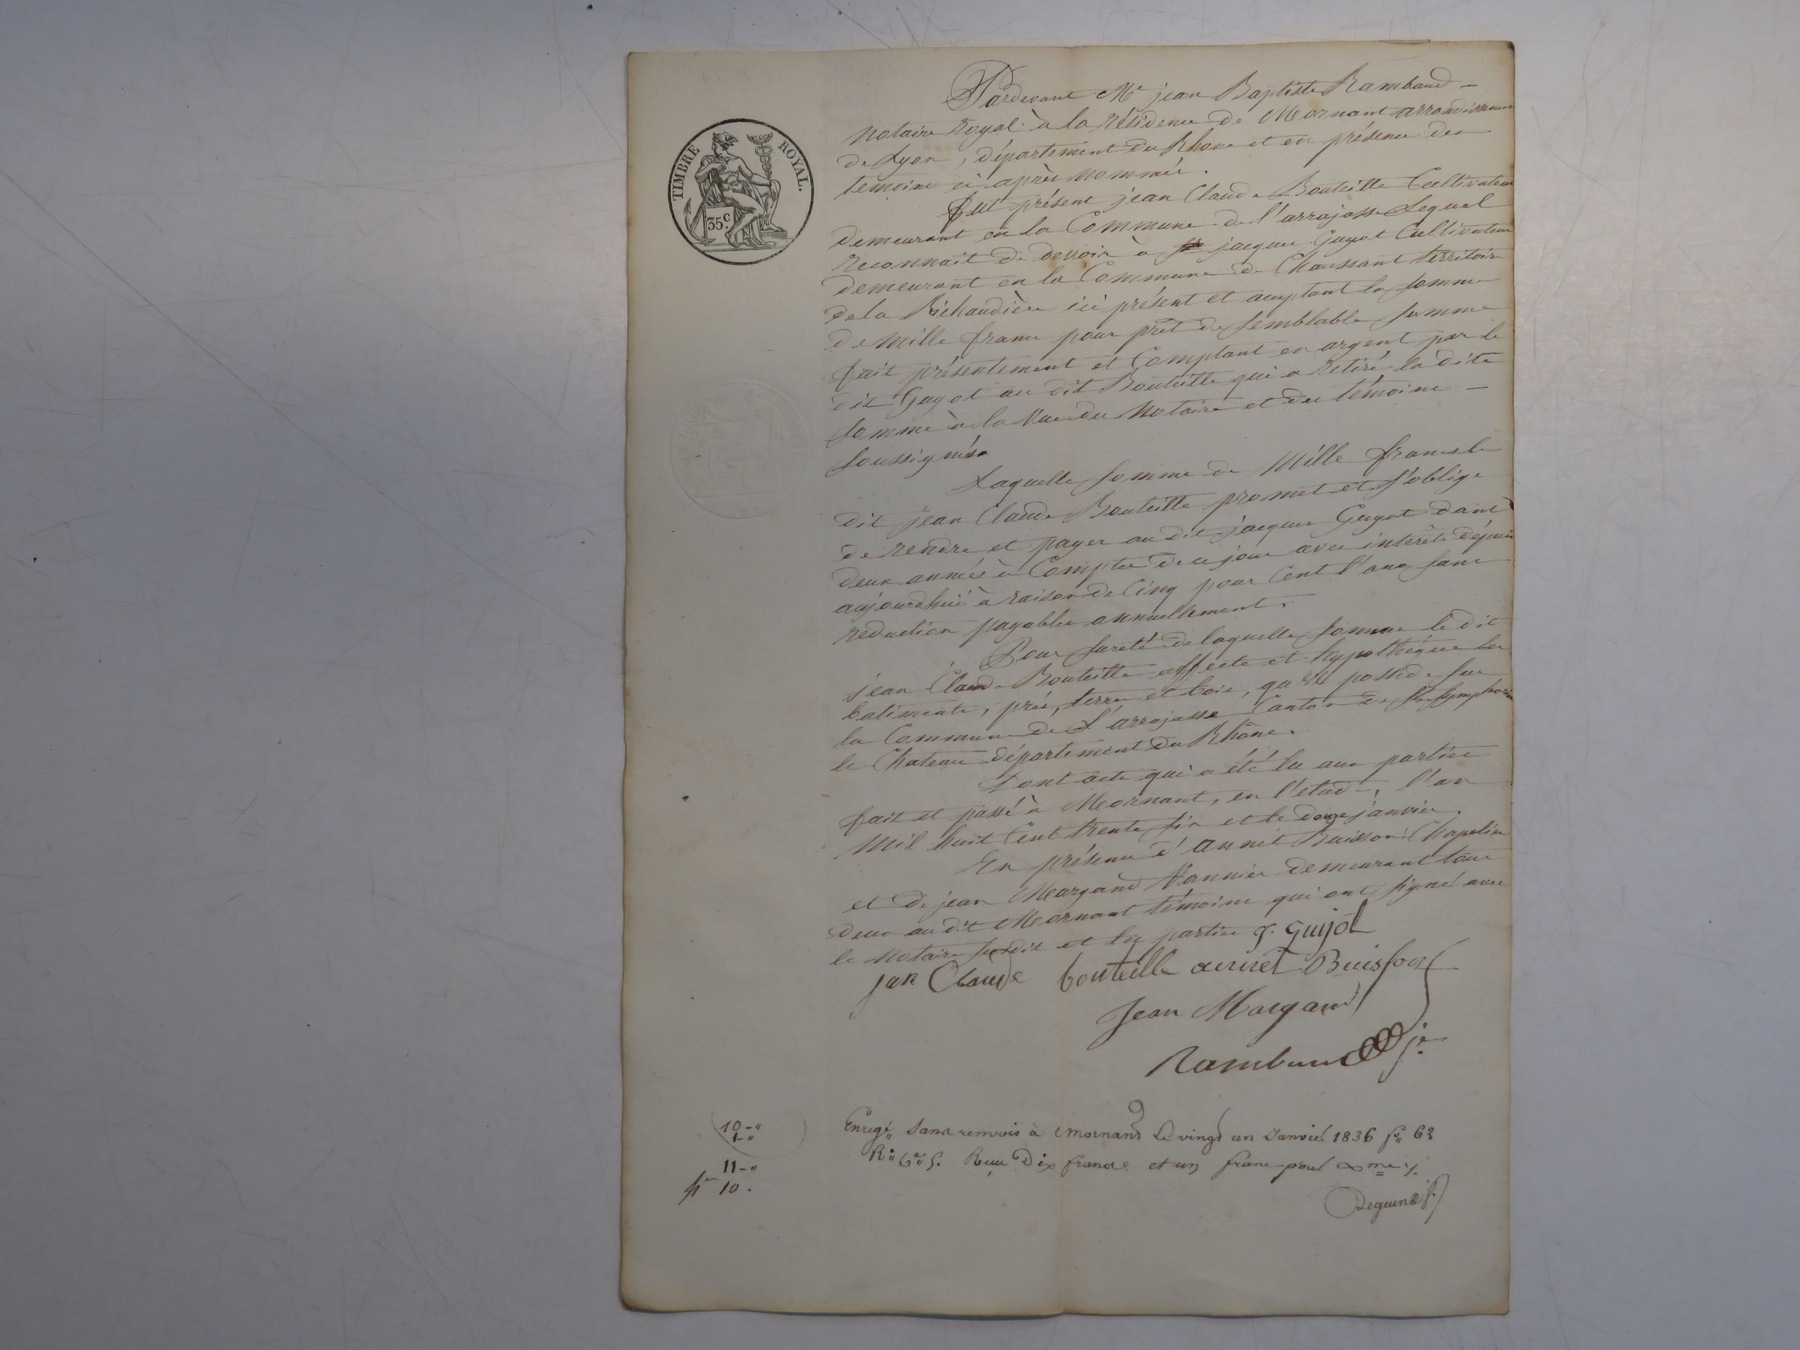 TIMBRE ROYAL.
35.c
Pardevant Me jean Baptiste Rambaud
notaire Royal à la résidence de Mornant arrondissement
de Lyon, département du Rhône et en présence des
temoins ci après nommés.
Fut présent jean Claude Bouteille Cultivateur
demeurant en la Commune de l'arrajasse Lequel
reconnait de devoir à jacques Guyot Cultivateur
demeurant en la Commune de Chaussant territoire
de la Richaudière ici présent et acceptant la somme
de mille francs pour prêt de semblable somme
fait présentement et Comptant en argent par le
dit Guyot au dit Bouteille qui a retiré la dite
somme à la Vue du Notaire et des témoins
soussignés.
Laquelle somme de Mille francs le
dit jean Claude Bouteille promet et s'oblige
de rendre et payer au dit jacques Guyot dans
deux années à Compter de ce jour avec intérêts dépuis
aujourdhui à raison de Cinq pour Cent l'an sans
réduction payables annuellement.
Pour sureté de laquelle somme le dit
jean Claude Bouteille affecte et hypothèque les
batiments, prés, terres et bois, qu'il possède sur
la Commune de L'arrajasse Canton de St Symphorien
le Chateau département du Rhône.
Dont acte qui a été lu aux parties
fait et passé à Mornant, en l'étude, l'an
Mil huit Cent trente six et le douze janvier.
En présence d'annet Buisson Chapelier
et de jean Margand Vannier demeurant tous
deux au dit Mornant témoins qui ont signé avec
le notaire susdit et les parties J. Guijot
jan Claude bouteille annet Buisson
Jean Margand
Rambaud
10-"
1-"
11-"
10.
Enregé sans renvois à Mornand le vingt un Janvier 1836 fo 63
Ro Reçu Dix francs et un franc pour me